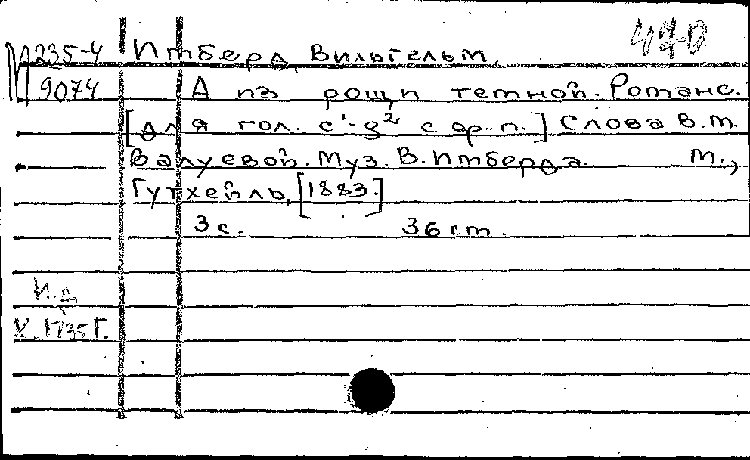 М 235-4 Имберд, Вильгельм.
9074 А из рощи темной. Романс.
[Для гол. c¹-g² с фп.] Слова В.М.
Валуевой. Муз. В. Имберда. М.,
Гутхейль, [1883.]
3 с. 36 cm.
И.д.
V. 1735 Г.